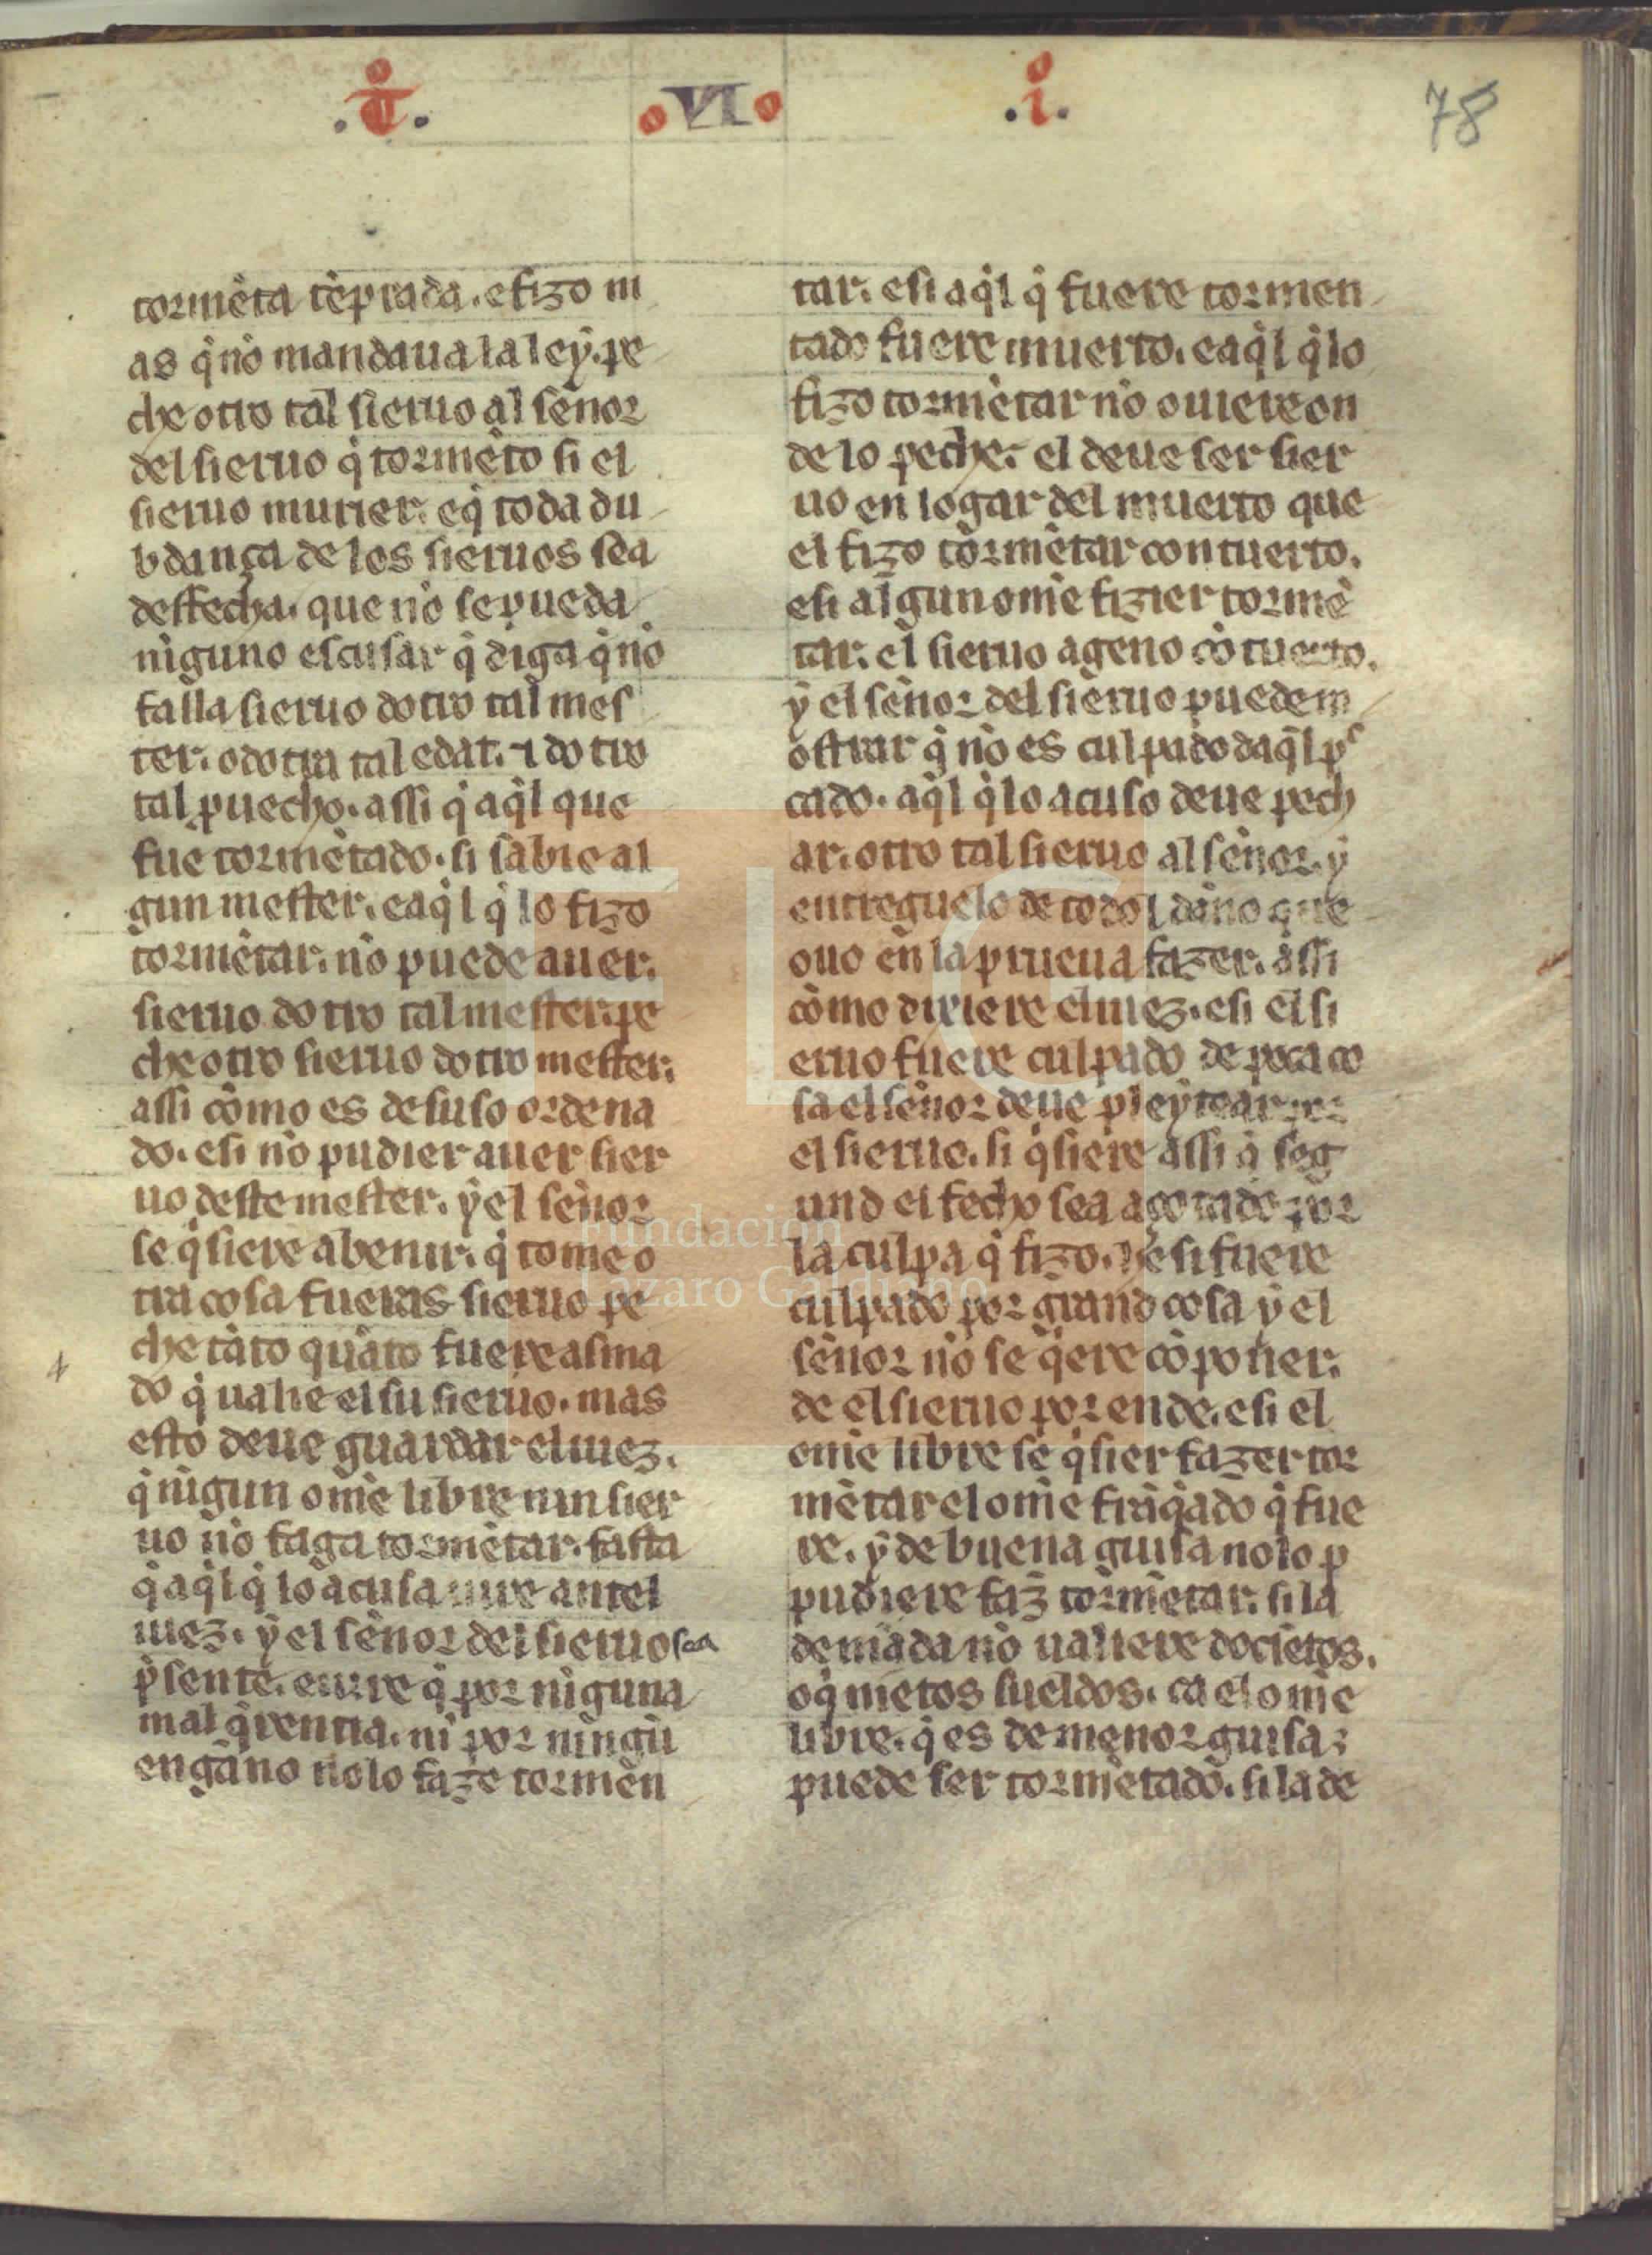 .t̊. .VI. .i̊.
78
tormẽta tẽprada. e fizo m
as q̃ nõ mandaua la ley. pe
che otro tal sieruo al señor
del sieruo q̃ tormẽto si el
sieruo murier. e q̃ toda du
bdança de los sieruos sea
desfecha. que nõ se pueda
nĩguno escusar q̃ diga q̃ nõ
falla sieruo dotro tal mes
ter. o dotra tal edat. ⁊ dotro
tal puecho. assi q̃ aq̃l que
fue tormẽtado. si sabie al
gun mester. e aq̃l q̃ lo fizo
tormẽtar. nõ puede auer.
sieruo dotro tal mester. pe
che otro sieruo dotro mester.
assi cõmo es de suso ordena
do. e si nõ pudier auer sier
uo deste mester. ỹ el señor
se q̃siere abenir. q̃ tome o
tra cosa fueras sieruo pe
che tãto quãto fuere asma
do q̃ ualie el su sieruo. mas
esto deue guardar el iuez.
q̃ nĩgun omẽ libre nin sier
uo nõ faga tormẽtar. fasta
q̃ aq̃l q̃ lo acusa iure antel
iuez. ỹ el señor del sieruo sea
p̃sente. e iure q̃ por nĩguna
mal q̃rentia. nĩ por ningũ
engãno nolo faze tormẽn
tar. e si aq̃l q̃ fuere tormen
tado fuere muerto. e aq̃l q̃ lo
fizo tormẽtar nõ ouiere on
de lo peche. el deue ser sier
uo en logar del muerto que
el fizo tormẽtar con tuerto.
e si algun omẽ fizier tormẽ
tar. el sieruo ageno cõ tuerto.
ỹ el señor del sieruo puede m
ostrar q̃ nõ es culpado daq̃l pe
cado. aq̃l q̃ lo acuso deue pech
ar. otro tal sieruo al señor. ỹ
entreguelo de todol dãno que
ouo en la prueua fazer. assi
cõmo dixiere el iuez. e si el si
eruo fuere culpado de poca co
sa el señor deue pleytear por
el sieruo. si q̃siere assi q̃ seg
und el fecho sea açotado por
la culpa q̃ fizo. ỹ e si fuere
culpado por grand cosa ỹ el
señor nõ se q̃ere cõponer.
de el sieruo por ende. e si el
omẽ libre se q̃sier fazer tor
mẽtar el omẽ frãq̃ado q̃ fue
re. ỹ de buena guisa nolo p
pudiere faz̃ tormẽtar. si la
demãda nõ ualiere dociẽtos.
o q̃niẽtos sueldos. ca el omẽ
libre. q̃ es de menor guisa;
puede ser tormẽtado. si la de
Fundación
Lázaro Galdiano
FLG